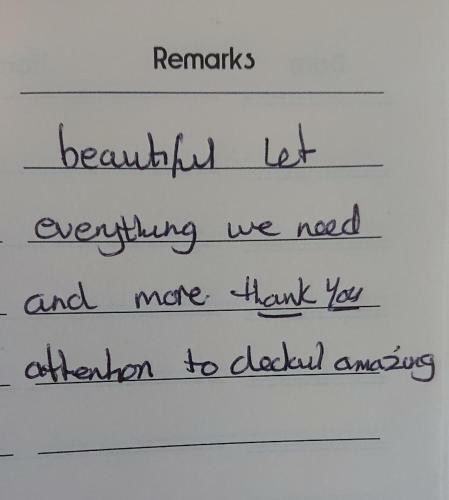 Remarks
beautiful Let
everything we need
and more. thank you
attention to deckul amazing